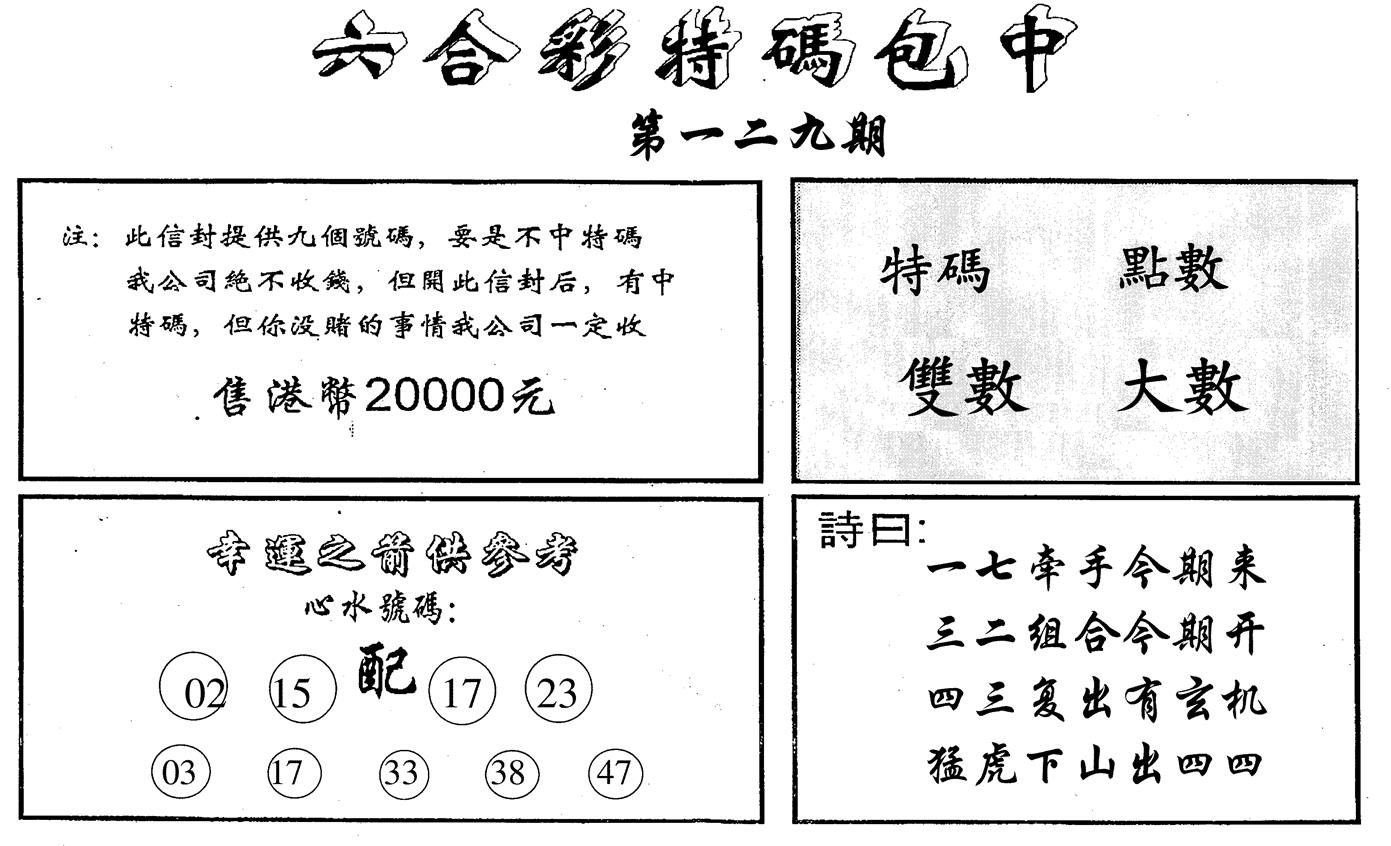 六合彩特碼包中
第一二九期
注：此信封提供九個號碼，要是不中特碼
我公司絕不收錢，但開此信封后，有中
特碼，但你没賭的事情我公司一定收
售港幣20000元
特碼 點數
雙數 大數
幸運之箭供參考
心水號碼：
02 15 配 17 23
03 17 33 38 47
詩曰：
一七牵手今期来
三二组合今期开
四三复出有玄机
猛虎下山出四四